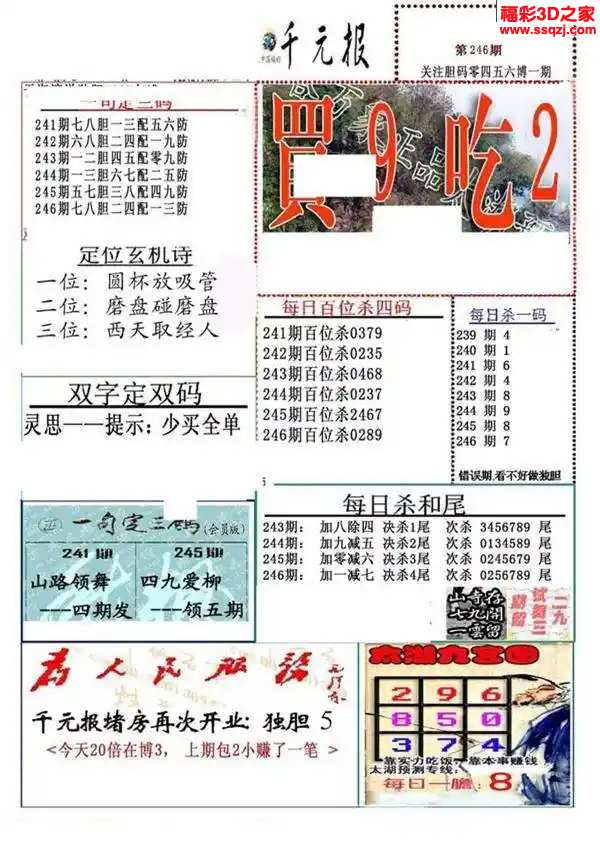 福彩3D之家
www.ssqzj.com
千元报
第246期
关注胆码零四五六博一期
一句定三码
241期七八胆一三配五六防
242期六八胆二四配一九防
243期一二胆四五配零九防
244期一三胆六七配二五防
245期五七胆三八配四九防
246期七八胆二四配一三防
買9吃2
定位玄机诗
一位：圆杯放吸管
二位：磨盘碰磨盘
三位：西天取经人
每日百位杀四码
241期百位杀0379
242期百位杀0235
243期百位杀0468
244期百位杀0237
245期百位杀2467
246期百位杀0289
每日杀一码
239 期 4
240 期 1
241 期 6
242 期 4
243 期 8
244 期 9
245 期 8
246 期 7
错误期,看不好做独胆
双字定双码
灵思——提示：少买全单
一句定三码(会员版)
241期
山路领舞
---四期发
245期
四九爱柳
---领五期
每日杀和尾
243期： 加八除四 决杀1尾 次杀 3456789 尾
244期： 加九减五 决杀2尾 次杀 0134589 尾
245期： 加零减六 决杀3尾 次杀 0245679 尾
246期： 加一减七 决杀4尾 次杀 0256789 尾
为人民服务
千元报堵房再次开业：独胆 5
<今天20倍在博3， 上期包2小赚了一笔 >
太湖九宫图
2 9 6
8 5 0
3 7 4
靠实力吃饭，靠本事赚钱
太湖预测专线：
每日一胆：8